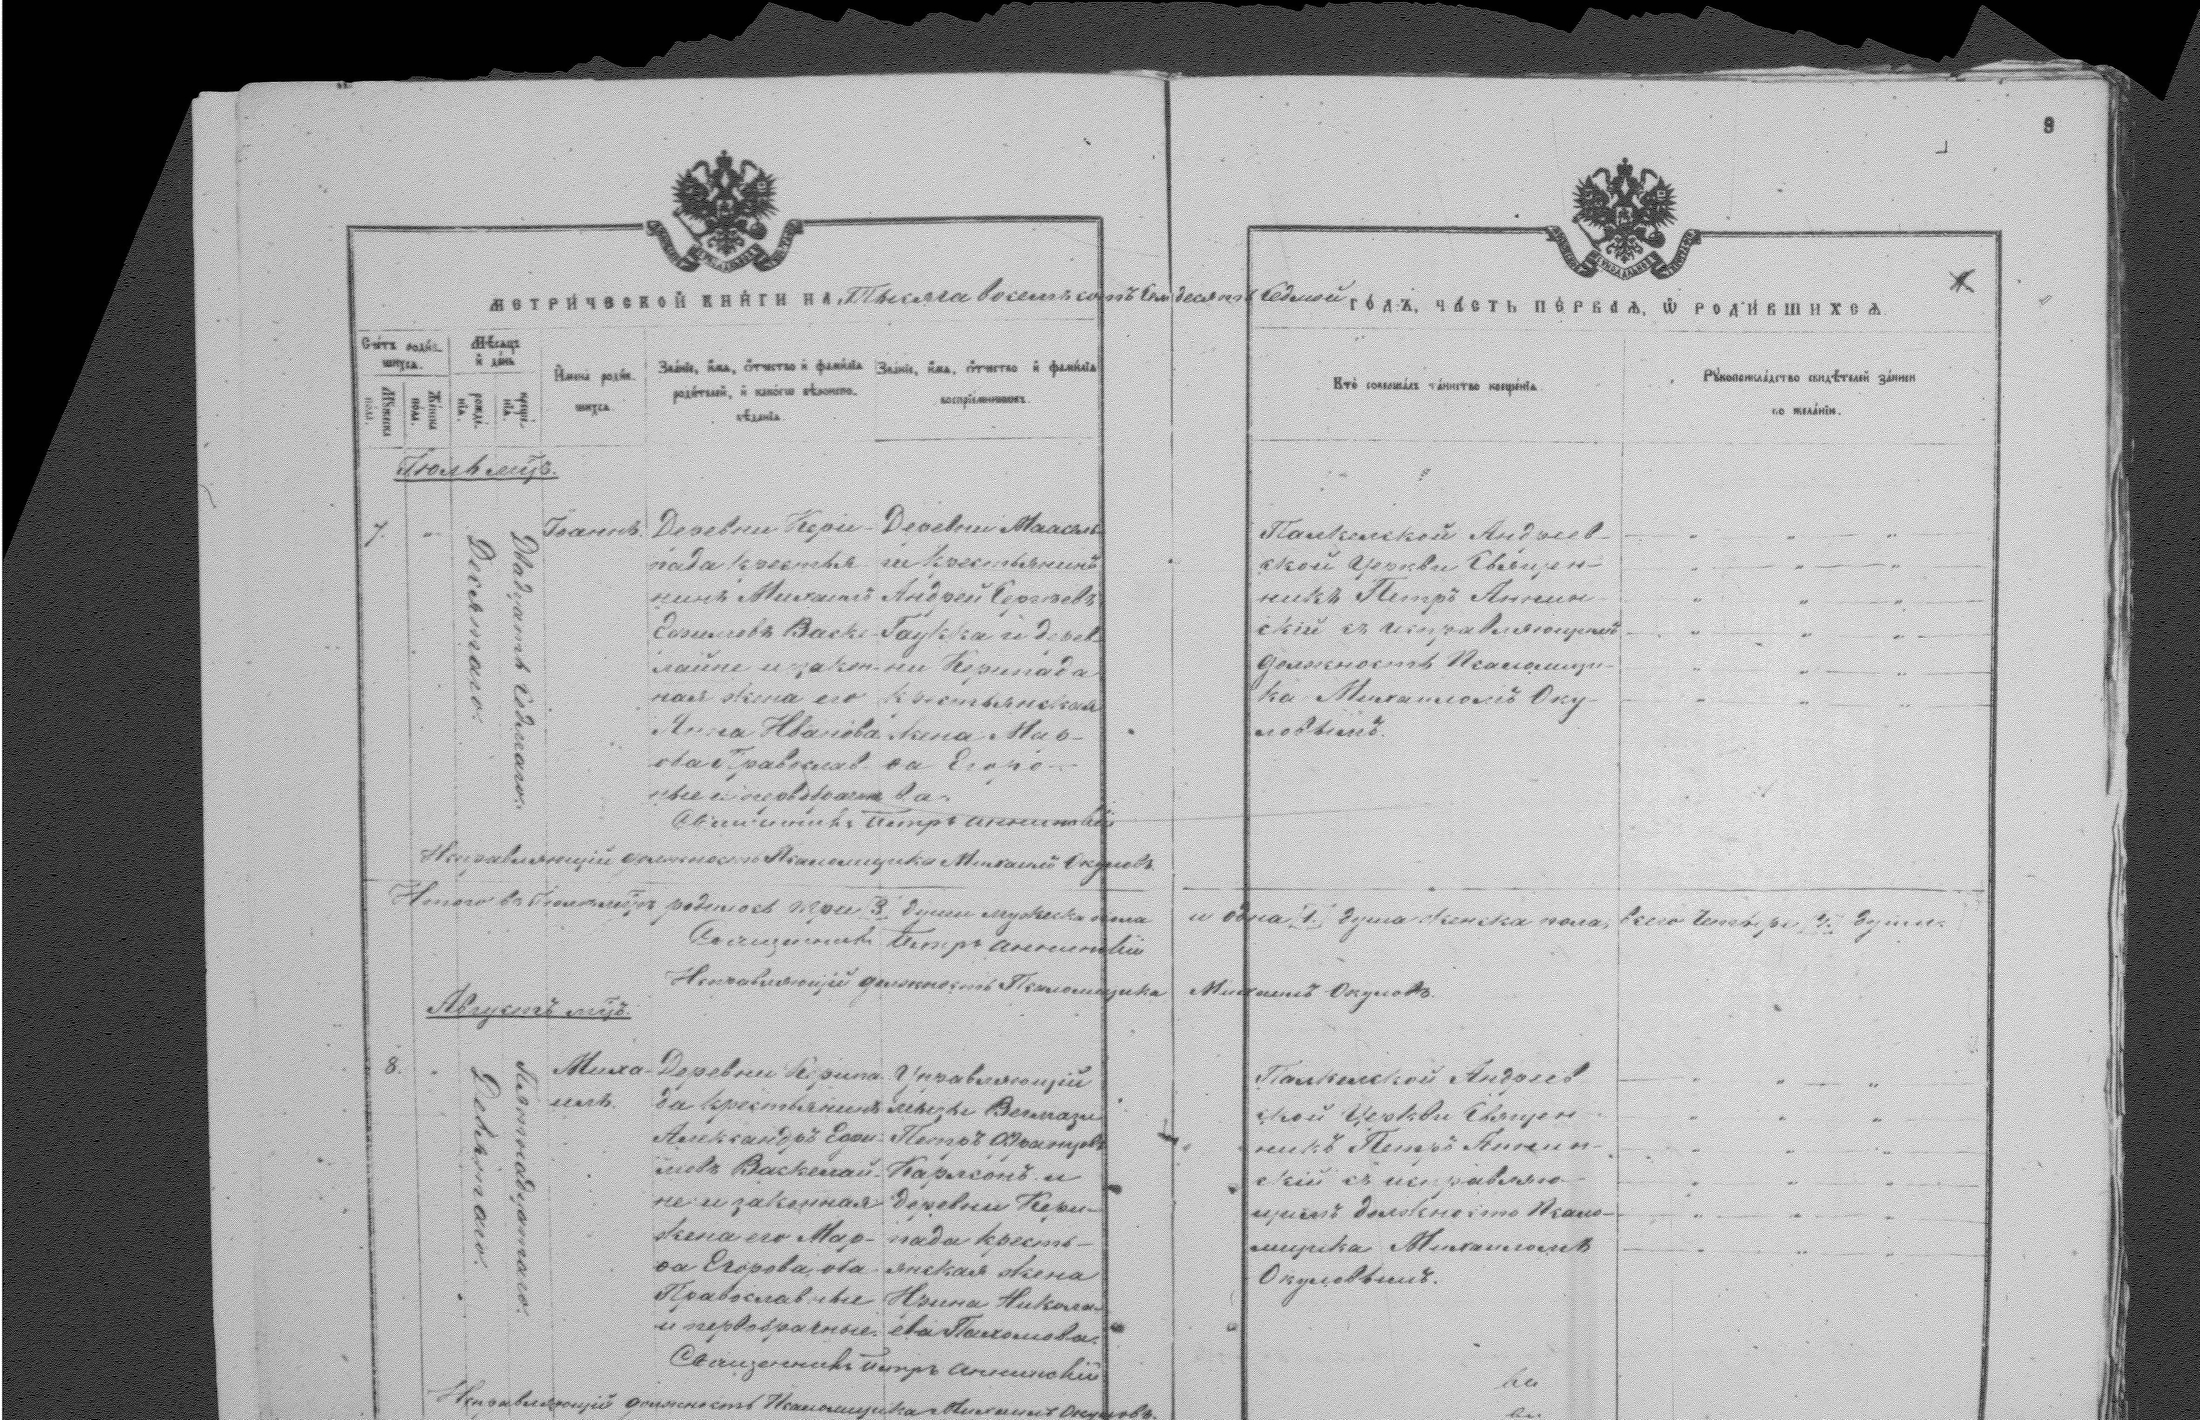 9
МЕТРИЧЕСКОЙ КНИГИ НА Тысяча восемьсотъ Семдесятъ Седмой ГОДЪ, ЧАСТЬ ПЕРВАЯ, Ѿ РОДИВШИХСЯ
Счетъ родив-
шихся.
Мѣсяцъ
и день
Мужеска
пола.
Женска
пола.
рожде-
нія.
креще-
нія.
Имена родив-
шихся.
Званіе, имя, отчество и фамилія
родителей, и какого вѣроиспо-
вѣданія.
Званіе, имя, отчество и фамилія
воспріемниковъ.
Кто совершалъ таинство крещенія.
Рукоприкладство свидѣтелей записи
по желанію.
Іюль мцъ.
7.
Десятаго.
Двадцать Седмаго.
Іоаннъ.
Деревни Кери-
пада крестья-
нинъ Михаилъ
Ефимовъ Васке-
лайне и закон-
ная жена его
Анна Иванова
ова Православ-
ные и первобрачные
Деревни Мааселъ-
ги крестьянинъ
Андрей Сергѣевъ
Гаукка и дерев-
ни Керипада
крестьянская
жена Мар-
ѳа Егоро-
ва.
Палкельской Андреев-
ской Церкви Священ-
никъ Петръ Аннин-
скій съ исправляющимъ
должность Псаломщи-
ка Михаиломъ Оку-
ловымъ.
Священникъ Петръ Аннинскій
Исправляющій должность Псаломщика Михаилъ Окуловъ.
Итого въ Іюлѣ мцѣ родилось три 3 души мужеска пола и одна 1. душа женска пола, всего четыре 4. души.
Священникъ Петръ Аннинскій
Исправляющій должность Псаломщика Михаилъ Окуловъ.
Августъ мцъ.
8.
Девятаго.
Пятнадцатаго.
Миха-
илъ.
Деревни Керипа-
да крестьянинъ
Александръ Ефи-
мовъ Васкелай-
не и законная
жена его Мар-
ѳа Егорова, оба
Православные
и первобрачные.
Управляющій
мызы
Петръ Францовъ
Карлсонъ и
деревни Кери-
пада кресть-
янская жена
Ирина Никола-
ева Пахомова.
Палкельской Андреев
ской Церкви Священ
никъ Петръ Аннин-
скій съ исправляю-
щимъ должность Псало-
мщика Михаиломъ
Окуловымъ.
Священникъ Петръ Аннинскій
Исправляющій должность Псаломщика Михаилъ Окуловъ.